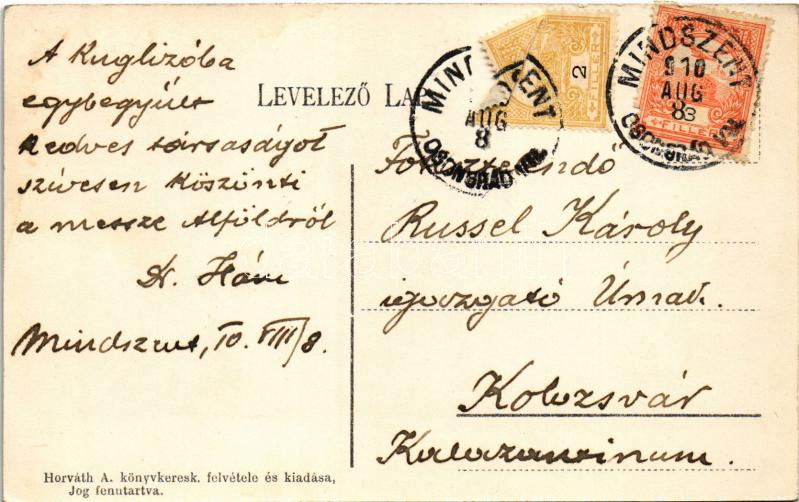 A Kuglizóba
egybegyűlt
kedves társaságot
szívesen köszönti
a messze Alföldről
Dr.
Mindszent, 10. VIII/8.
Horváth A. könyvkeresk. felvétele és kiadása,
Jog fenntartva.
LEVELEZŐ
MINDSZENT
AUG
8
CSONGRÁD VM.
2
FILLÉR
MINDSZENT
910
AUG
8
CSONGRÁD VM.
FILLÉR
Főtisztelendő
Russel Károly
igazgató Úrnak.
Kolozsvár
Kalazantinum.